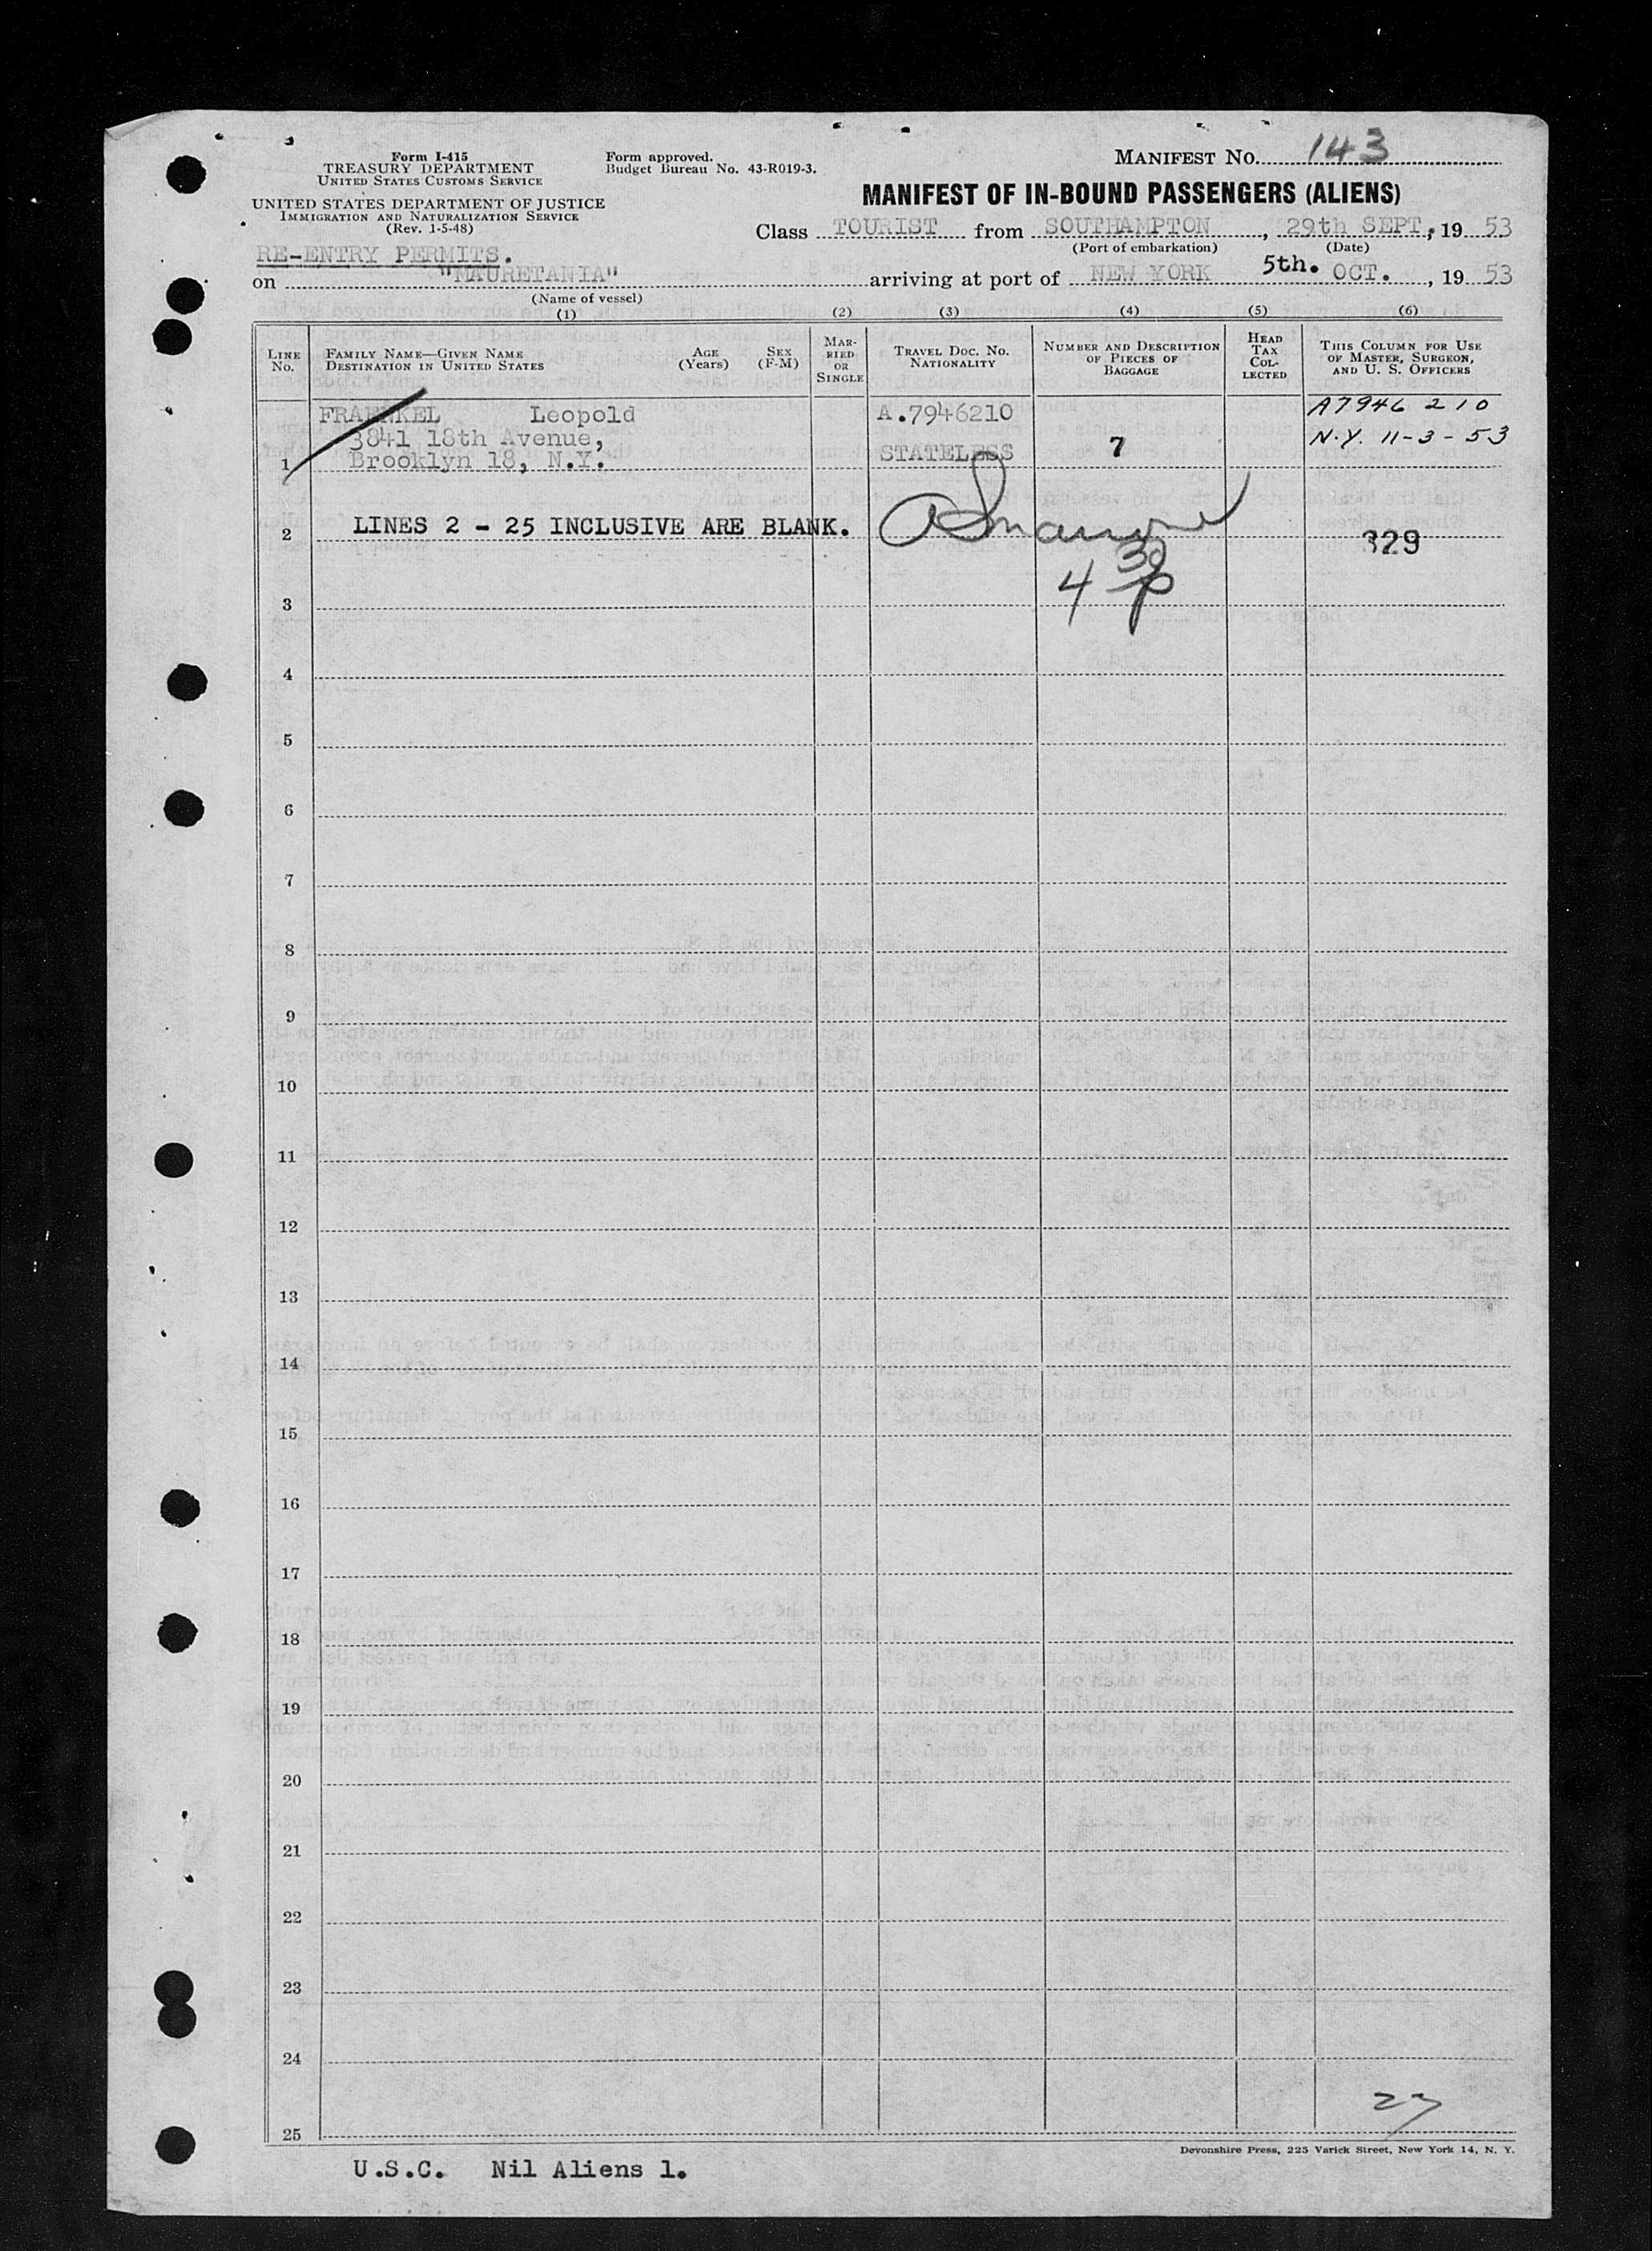 Form I-415
TREASURY DEPARTMENT
UNITED STATES CUSTOMS SERVICE
UNITED STATES DEPARTMENT OF JUSTICE
IMMIGRATION AND NATURALIZATION SERVICE
(Rev. 1-5-48)
Form approved.
Budget Bureau No. 43-R019-3.
MANIFEST NO. 143
MANIFEST OF IN-BOUND PASSENGERS (ALIENS)
Class TOURIST from SOUTHAMPTON, 29th SEPT, 19 53
(Port of embarkation) (Date)
RE-ENTRY PERMITS.
on "MAURETANIA" arriving at port of NEW YORK 5th. OCT., 19 53
(Name of vessel)
(1) (2) (3) (4) (5) (6)
LINE No. FAMILY NAME—GIVEN NAME DESTINATION IN UNITED STATES AGE (Years) SEX (F-M) MARRIED OR SINGLE TRAVEL DOC. NO. NATIONALITY NUMBER AND DESCRIPTION OF PIECES OF BAGGAGE HEAD TAX COLLECTED THIS COLUMN FOR USE OF MASTER, SURGEON, AND U. S. OFFICERS
FRAENKEL Leopold A.7946210 A7946 210
3841 18th Avenue, 7 N.Y. 11-3-53
1 Brooklyn 18, N.Y. STATELESS
2 LINES 2 - 25 INCLUSIVE ARE BLANK. 329
4 30 p
3
4
5
6
7
8
9
10
11
12
13
14
15
16
17
18
19
20
21
22
23
24
27
25
Devonshire Press, 225 Varick Street, New York 14, N. Y.
U.S.C. Nil Aliens 1.